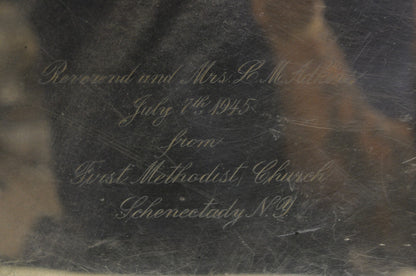 Reverend and Mrs. L. M. Adams
July 7th 1945
from
First Methodist Church
Schenectady N.Y